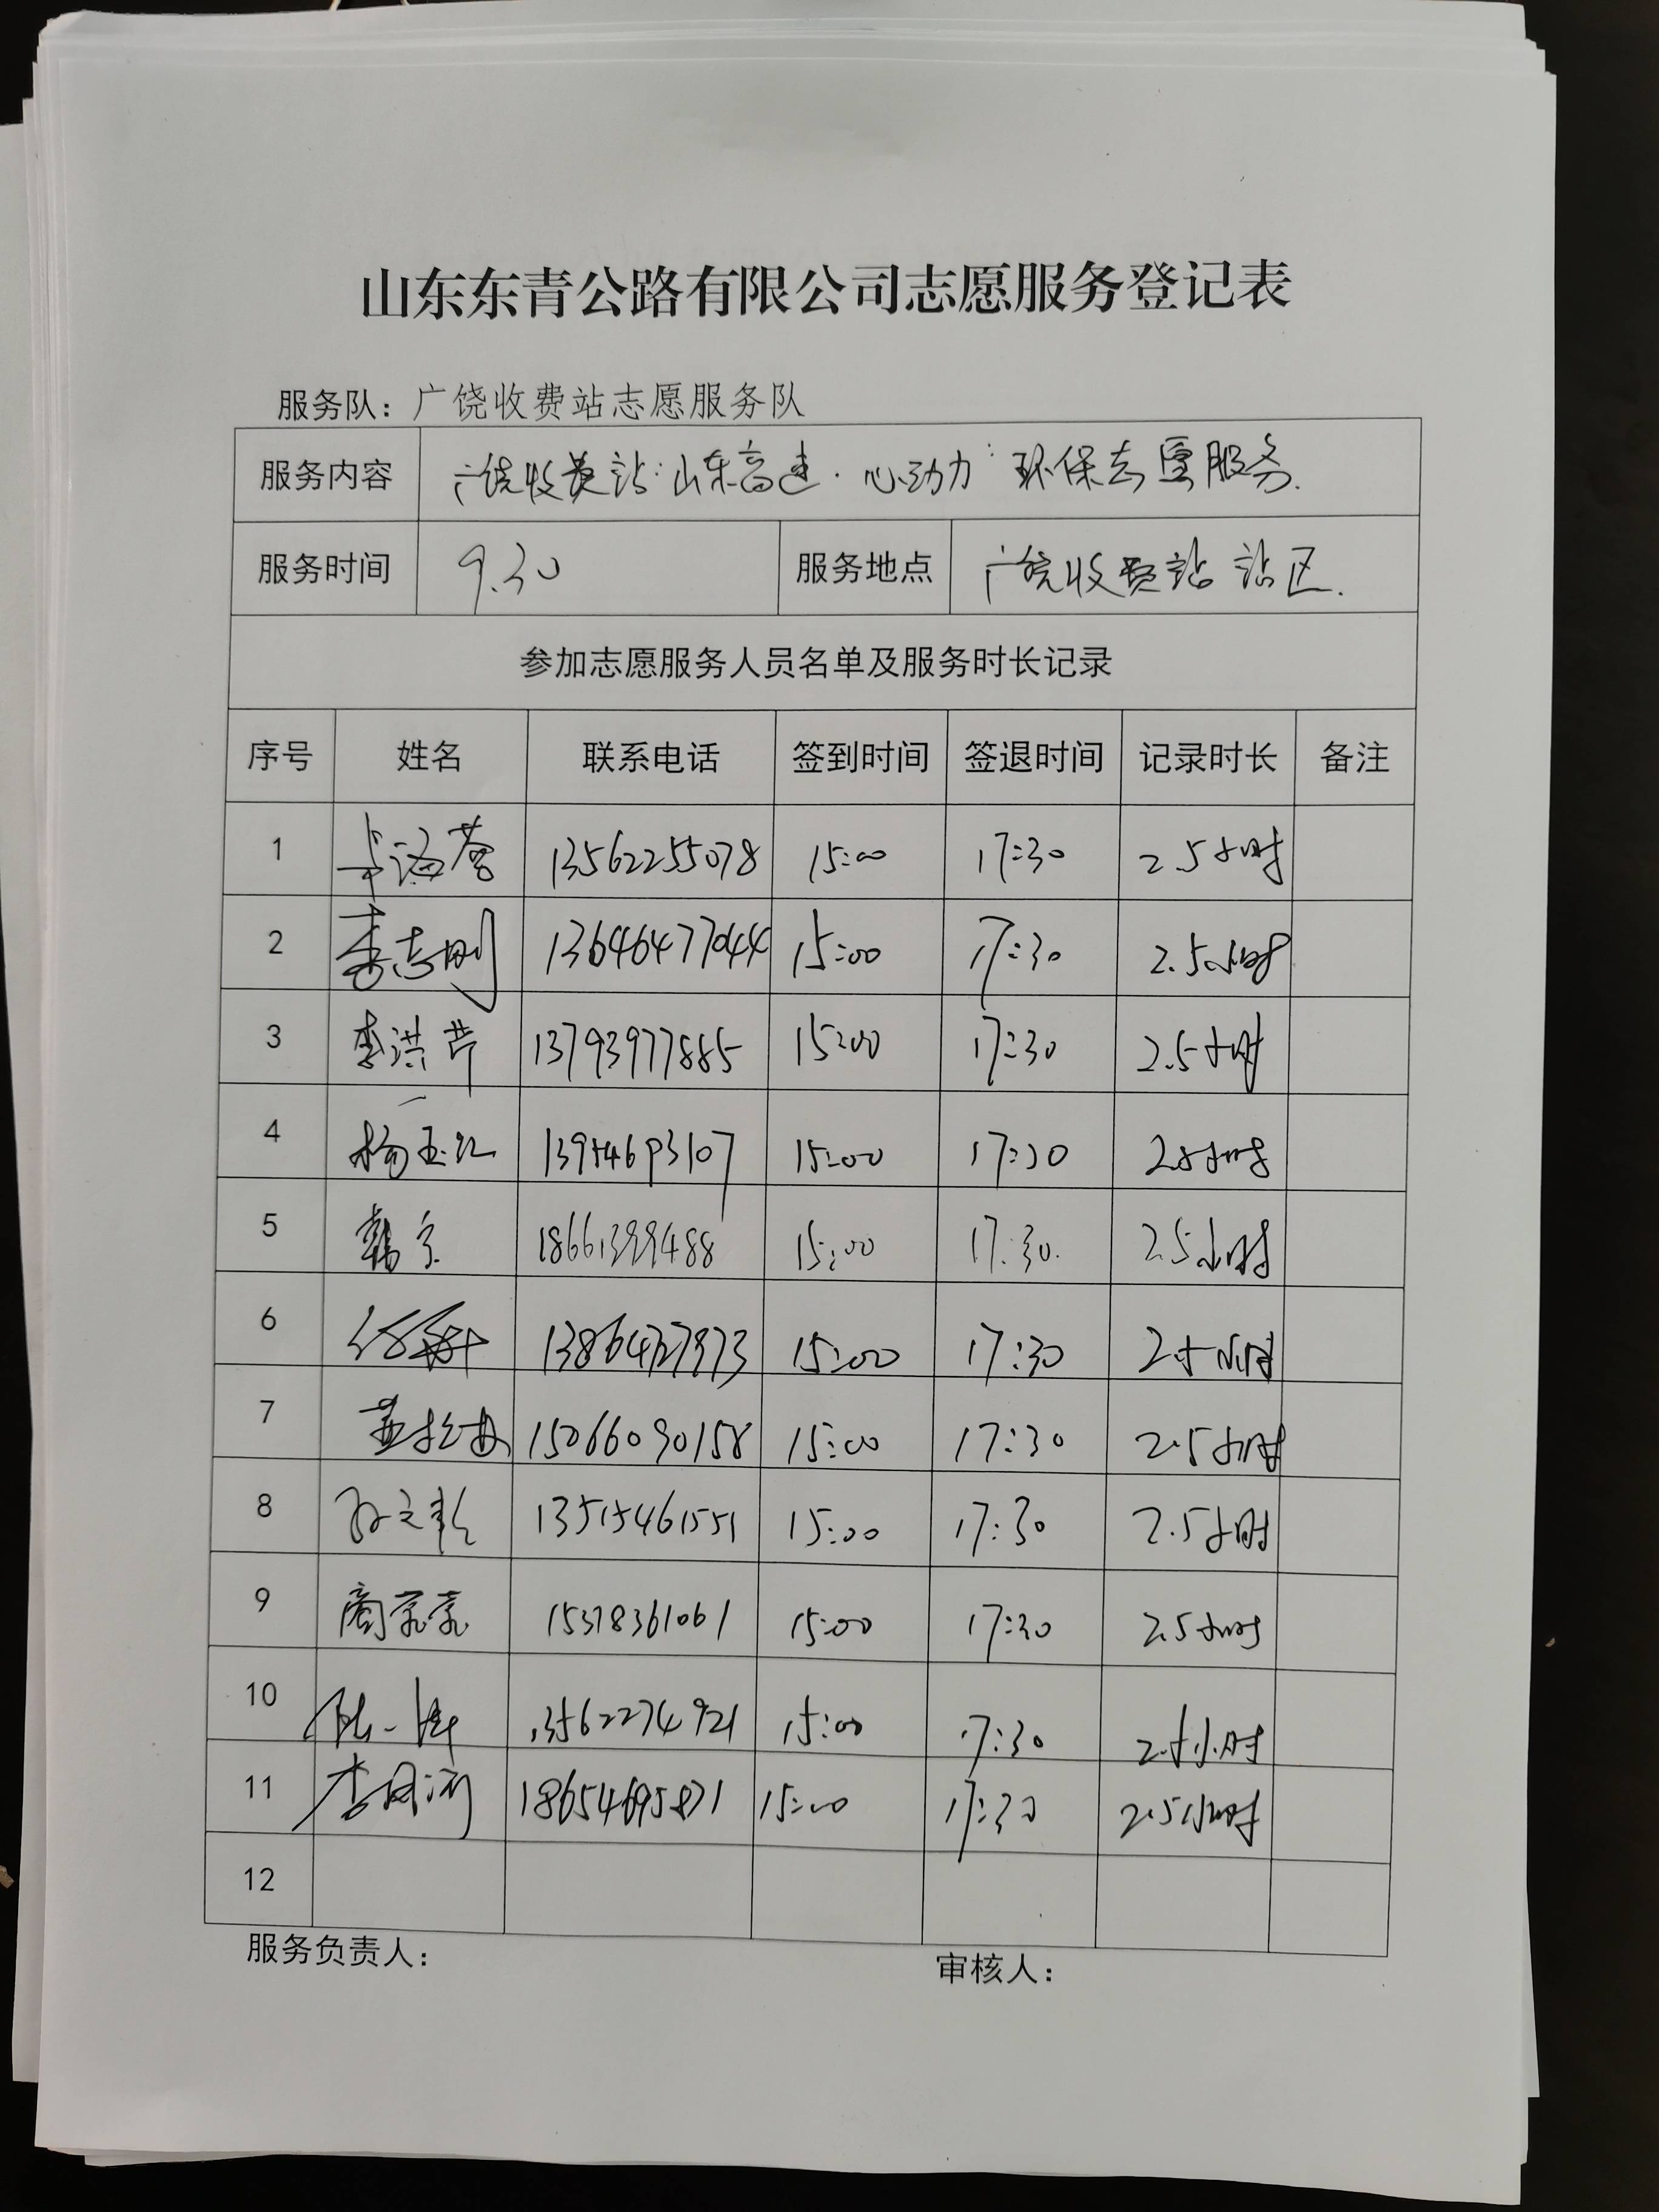 山东东青公路有限公司志愿服务登记表
服务队：广饶收费站志愿服务队
服务内容 广饶收费站"山东高速·心动力"环保志愿服务.
服务时间 9.30 服务地点 广饶收费站 站区.
参加志愿服务人员名单及服务时长记录
序号 姓名 联系电话 签到时间 签退时间 记录时长 备注
1 13562255078 15:00 17:30 2.5小时
2 李志刚 13646477044 15:00 17:30 2.5小时
3 李洪芹 13793977885 15:00 17:30 2.5小时
4 杨玉江 15:00 17:30 2.5小时
5 韩京 18661399488 15:00 17:30. 2.5小时
6 15:00 17:30 2.5小时
7 15066090158 15:00 17:30 2.5小时
8 13515461551 15:00 17:30 2.5小时
9 15:00 17:30 2.5小时
10 13562274921 15:00 17:30 2.5小时
11 18654695871 15:00 17:30 2.5小时
12
服务负责人： 审核人：